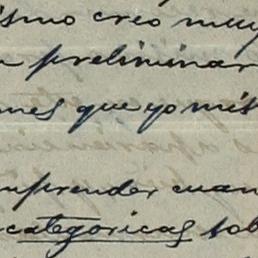 ismo creo muy
preliminar
ones que yo mis
mprender cuan
categoricas sob